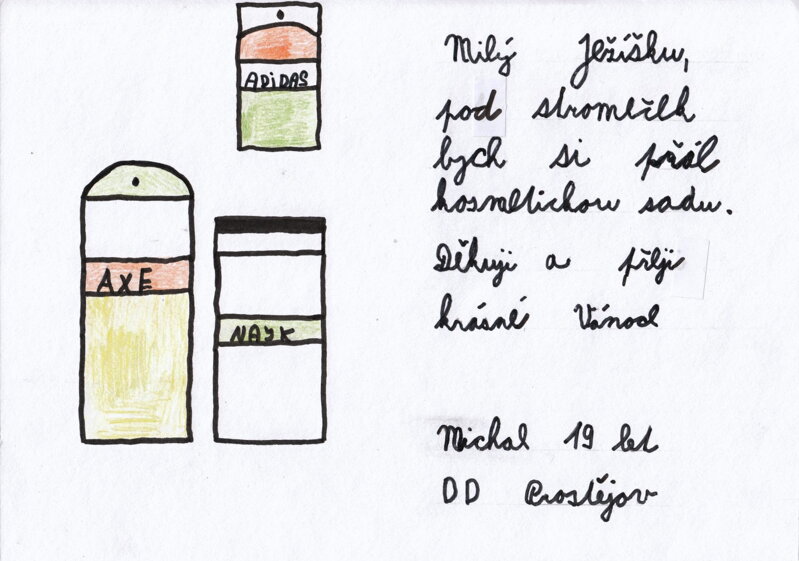 ADIDAS
AXE
NAYK
Milý Ježíšku,
pod stromeček
bych si přál
kosmetickou sadu.
Děkuji a přeji
krásné Vánoce
Michal 19 let
DD Prostějov